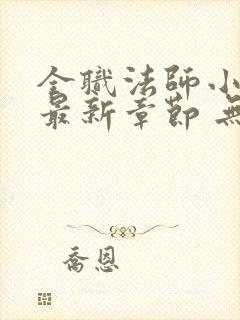 全職法師小
最新章節 無
喬恩